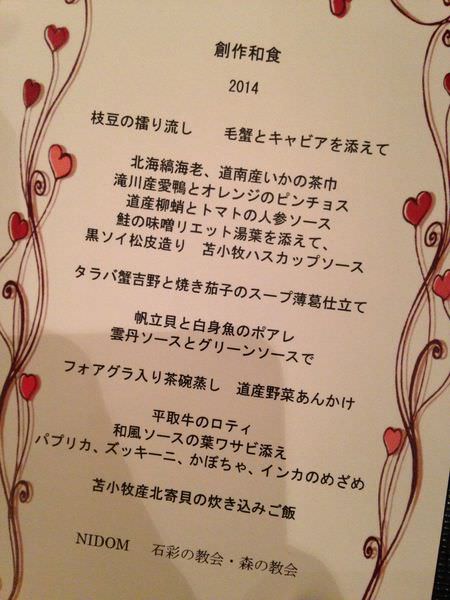 創作和食
2014
枝豆の擂り流し　毛蟹とキャビアを添えて
北海縞海老、道南産いかの茶巾
滝川産愛鴨とオレンジのピンチョス
道産柳蛸とトマトの人参ソース
鮭の味噌リエット湯葉を添えて、
黒ソイ松皮造り　苫小牧ハスカップソース
タラバ蟹吉野と焼き茄子のスープ薄葛仕立て
帆立貝と白身魚のポアレ
雲丹ソースとグリーンソースで
フォアグラ入り茶碗蒸し　道産野菜あんかけ
平取牛のロティ
和風ソースの葉ワサビ添え
パプリカ、ズッキーニ、かぼちゃ、インカのめざめ
苫小牧産北寄貝の炊き込みご飯
NIDOM　石彩の教会・森の教会